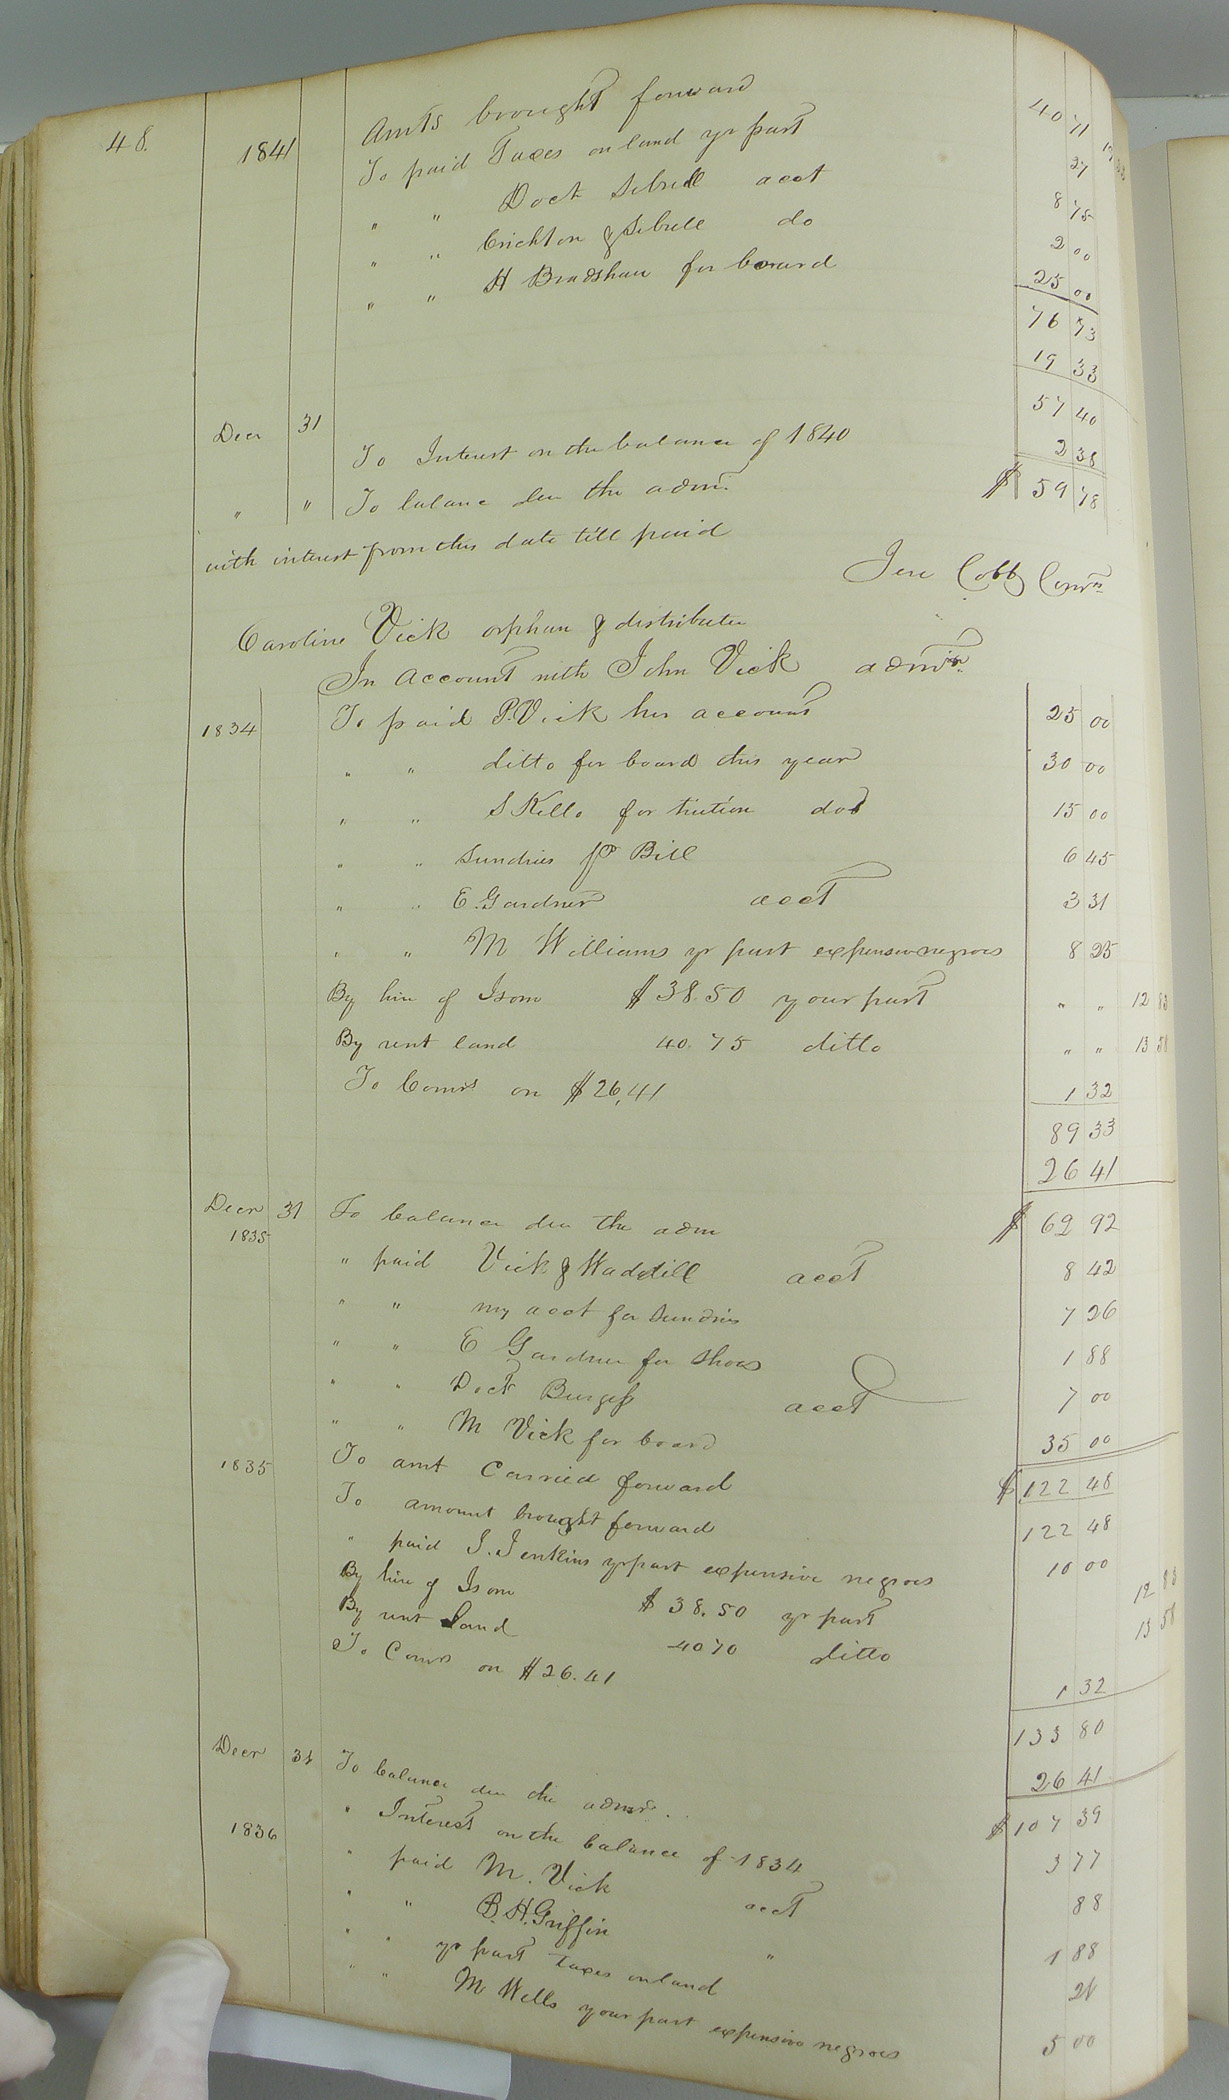 48.
1841 Amts brought forward 40 71
To paid Taxes on land yr part 27
" " Doct Sebrell acct 8 75
" " Crichton & Sebrell do 2 00
" " H Bradshaw for board 25 00
76 73
19 33
57 40
Decr 31 To Interest on the balance of 1840 2 38
" " To balance due the admr. $ 59 78
with interest from this date till paid
Jere Cobb Comr
Caroline Vick orphan & distributee
In Account with John Vick admr.
1834 To paid P. Vick her account 25 00
" " ditto for board this year 30 00
" " S Kello for tuition do 15 00
" " Sundries pr Bill 6 45
" " E. Gardner acct 3 31
" " M Williams yr part expensive negroes 8 25
By hire of Isom $38.50 your part " " 12 83
By rent land 40.75 ditto " " 13 58
To Comrs on $26,41 1 32
89 33
26 41
Decr 31 To balance due the adm $ 62 92
1835 " paid Vick & Waddill acct 8 42
" " my acct for Sundries 7 26
" " E Gardner for shoes 1 88
" " Doct Burgess acct 7 00
" " M Vick for board 35 00
1835 To amt Carried forward $ 122 48
To amount brought forward 122 48
" paid J. Jenkins yr part expensive negroes 10 00
By hire of Isom $38.50 yr part 12 83
By rent Land 40 70 ditto 13 58
To Comrs on $26.41 1 32
133 80
26 41
Decr 31 To balance due the admr. $ 107 39
" Interest on the balance of 1834 3 77
1836 " paid M. Vick acct 88
" " B. H. Griffin " 1 88
" " yr part taxes on land
" " M Wells your part expensive negroes 5 00